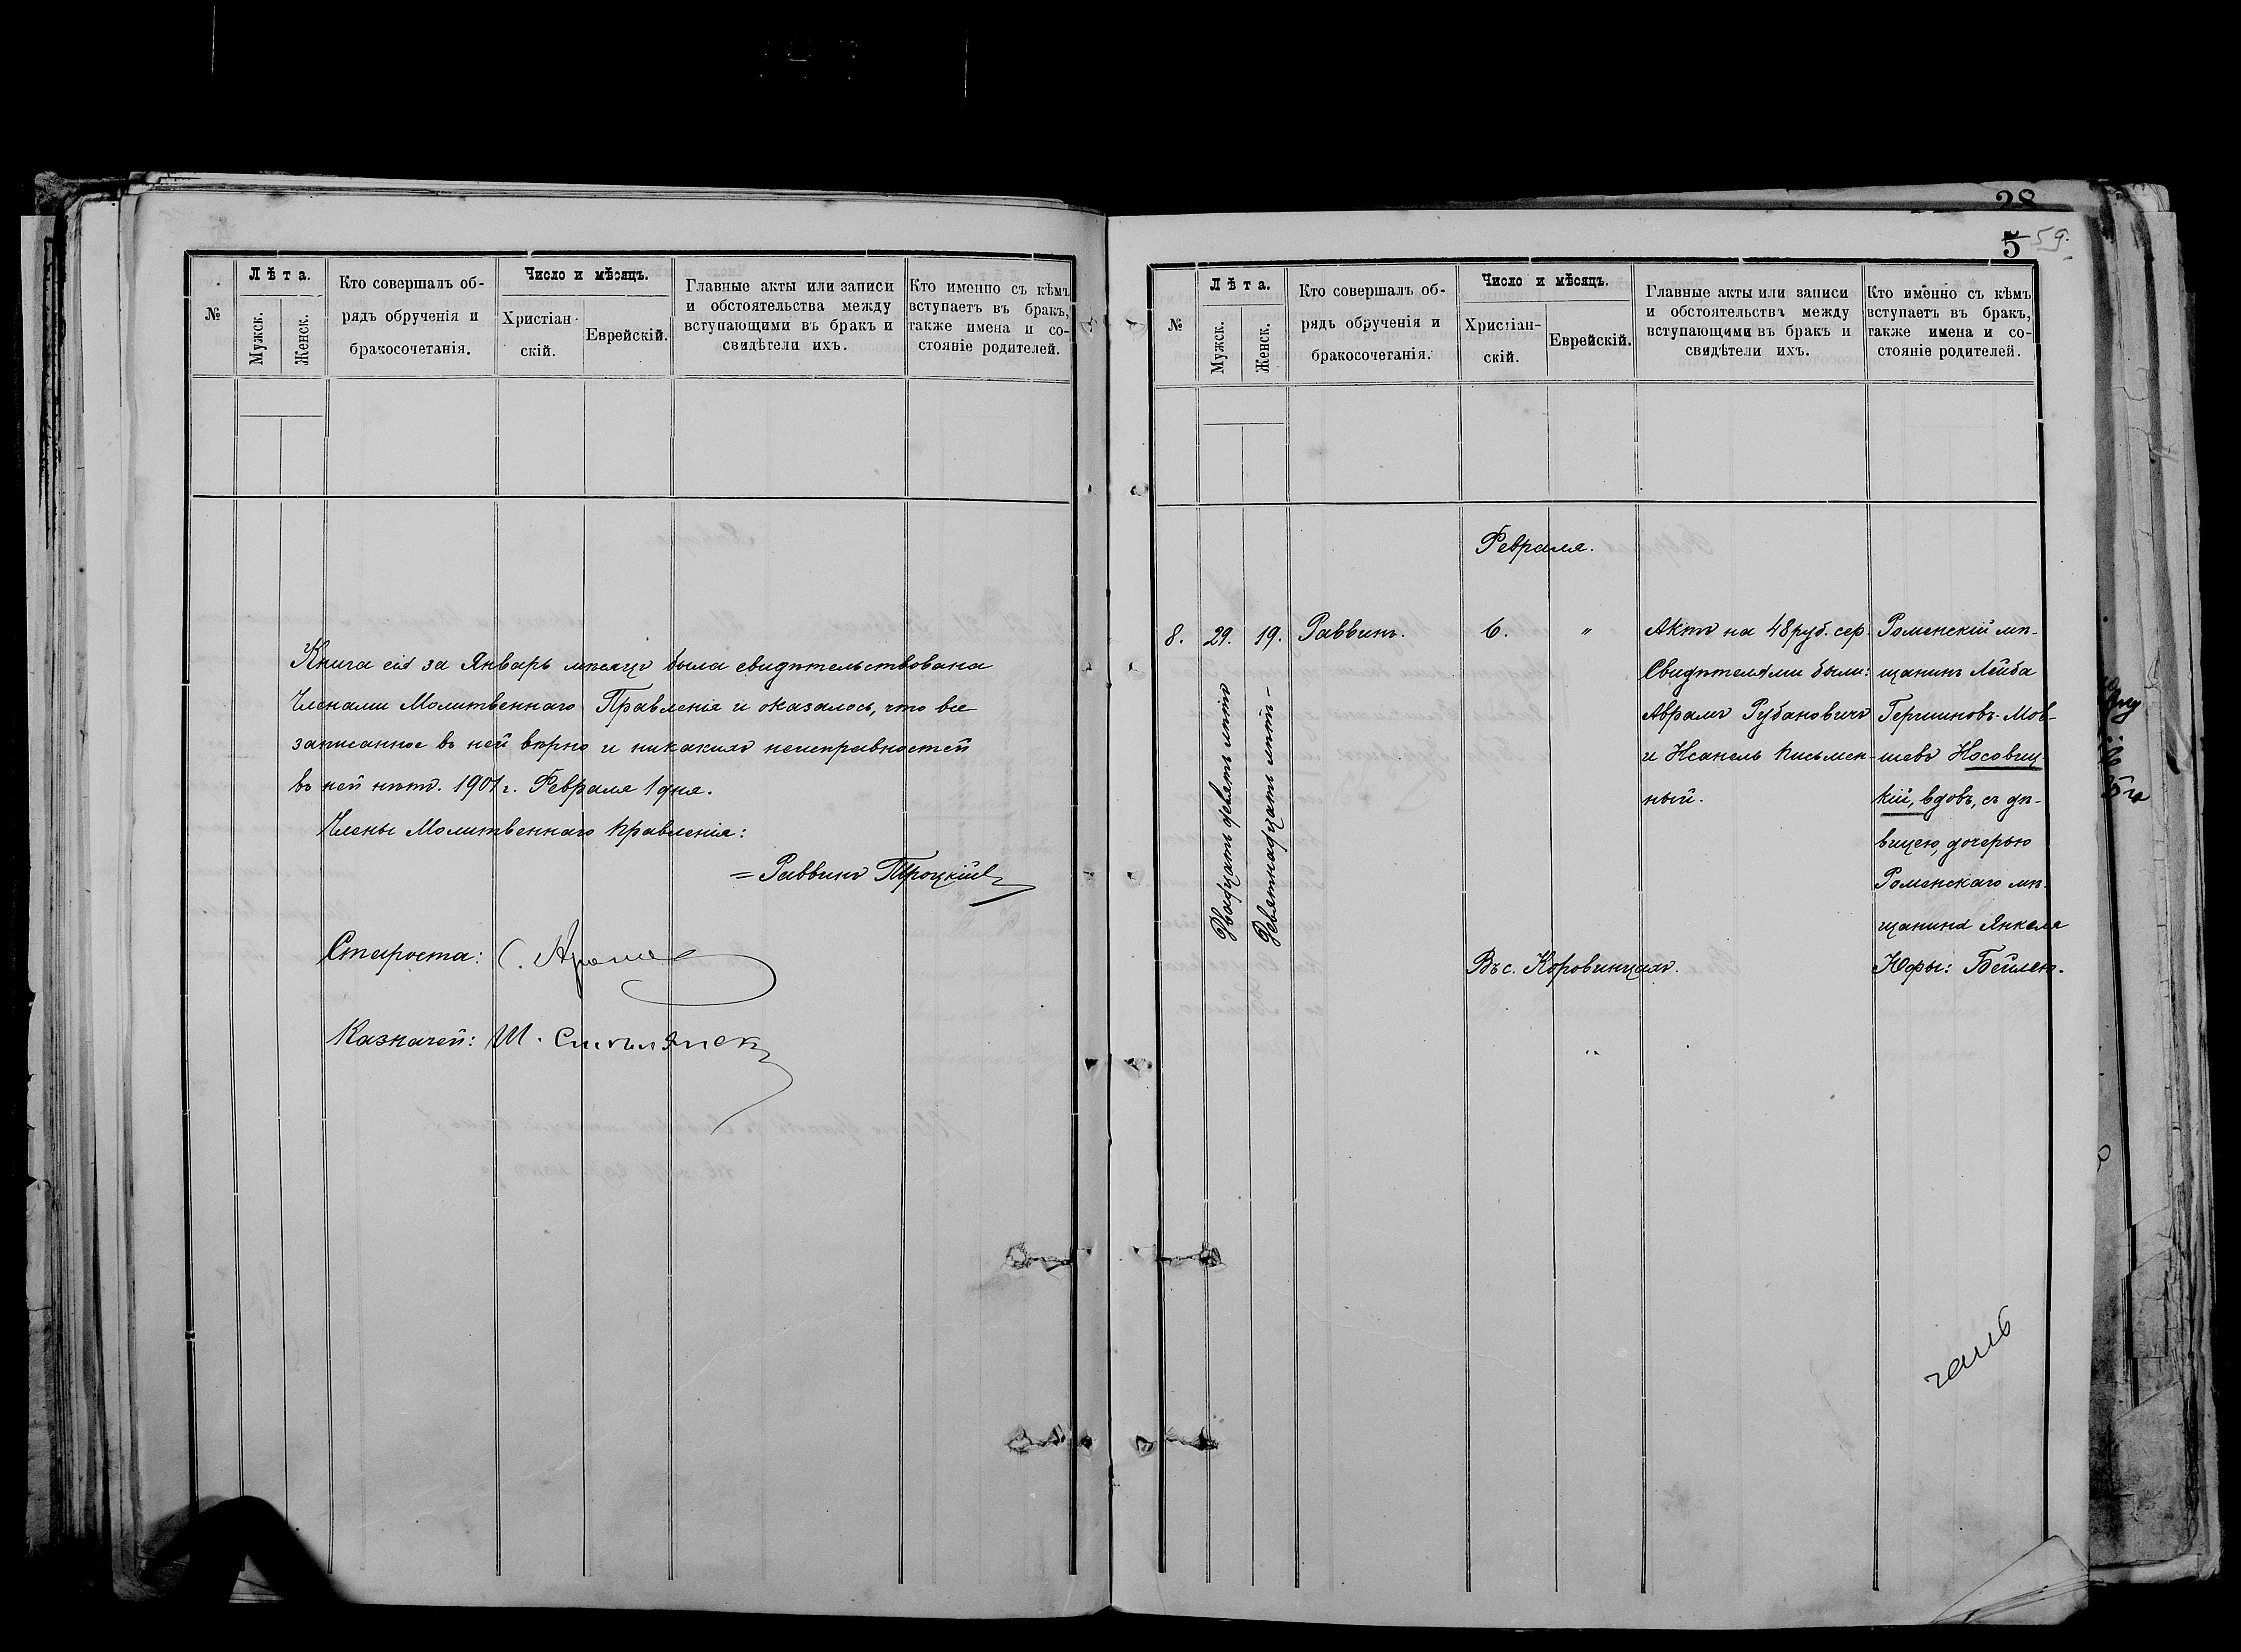 №
Лѣта.
Мужск.
Женск.
Кто совершалъ об-
рядъ обрученія и
бракосочетанія.
Число и мѣсяцъ.
Христіан-
скій.
Еврейскій.
Главные акты или записи
и обстоятельства между
вступающими въ бракъ и
свидѣтели ихъ.
Кто именно съ кѣмъ
вступаетъ въ бракъ,
также имена и со-
стояніе родителей.
Книга сія за Январь мѣсяцъ была свидѣтельствована
Членами Молитвеннаго Правленія и оказалось, что все
записанное въ ней вѣрно и никакихъ неисправностей
въ ней нѣтъ. 1901 г. Февраля 1 дня.
Члены Молитвеннаго Правленія:
= Раввинъ Троцкій
Староста: С.
Казначей: Ш.
28
5
59.
№
Лѣта.
Мужск.
Женск.
Кто совершалъ об-
рядъ обрученія и
бракосочетанія.
Число и мѣсяцъ.
Христіан-
скій.
Еврейскій.
Главные акты или записи
и обстоятельства между
вступающими въ бракъ и
свидѣтели ихъ.
Кто именно съ кѣмъ
вступаетъ въ бракъ,
также имена и со-
стояніе родителей.
Февраля.
8.
29.
Двадцать девять лѣтъ
19.
Девятнадцать лѣтъ
Раввинъ.
6.
"
Въ с. Коровинцахъ.
Актъ на 48 руб. сер.
Свидѣтелями были:
Аврамъ Рубановичъ
и Исанель Письмен-
ный.
Роменскій мѣ-
щанинъ Лейба
Гершиновъ-Мов-
шевъ Носовиц-
кій, вдовъ, съ дѣ-
вицею, дочерью
Роменскаго мѣ-
щанина Янкеля
Юфы: Бейлею.